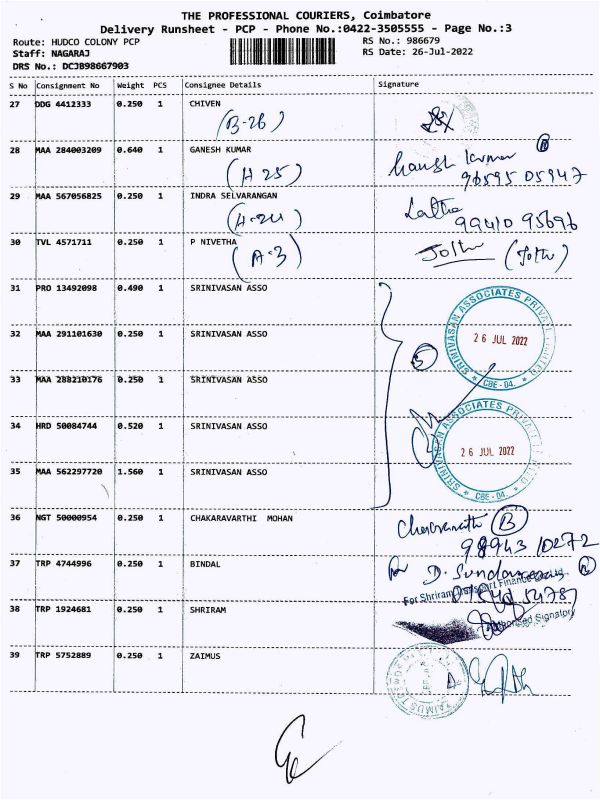 THE PROFESSIONAL COURIERS, Coimbatore
Delivery Runsheet - PCP - Phone No.:0422-3505555 - Page No.:3
Route: HUDCO COLONY PCP
RS No.: 986679
Staff: NAGARAJ
RS Date: 26-Jul-2022
DRS No.: DCJB98667903
S No Consignment No Weight PCS Consignee Details Signature
27 DDG 4412333 0.250 1 CHIVEN
(B-26)
28 MAA 284003209 0.640 1 GANESH KUMAR
(H 25)
98595 05947
29 MAA 567056825 0.250 1 INDRA SELVARANGAN
(H-24)
Latha
99410 95696
30 TVL 4571711 0.250 1 P NIVETHA
(A-3)
31 PRO 13492098 0.490 1 SRINIVASAN ASSO
SRINIVASAN ASSOCIATES PRIVATE LIMITED
26 JUL 2022
CBE-04.
32 MAA 291101630 0.250 1 SRINIVASAN ASSO
5
33 MAA 288210176 0.250 1 SRINIVASAN ASSO
34 HRD 50084744 0.520 1 SRINIVASAN ASSO
SRINIVASAN ASSOCIATES PRIVATE LIMITED
26 JUL 2022
CBE-04.
35 MAA 562297720 1.560 1 SRINIVASAN ASSO
36 NGT 50000954 0.250 1 CHAKARAVARTHI MOHAN
B
98943 10272
37 TRP 4744996 0.250 1 BINDAL
D. Sundar
For Shriram Transport Finance Co. Ltd.
38 TRP 1924681 0.250 1 SHRIRAM
Authorised Signatory
39 TRP 5752889 0.250 1 ZAIMUS